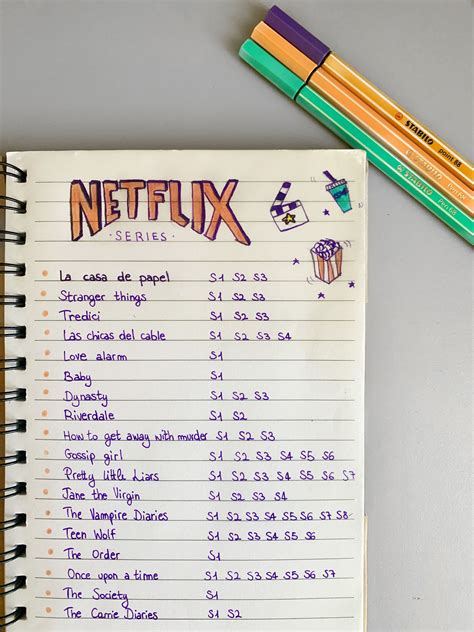 NETFLIX
· SERIES ·
La casa de papel S1 S2 S3
Stranger things S1 S2 S3
Tredici S1 S2 S3
Las chicas del cable S1 S2 S3 S4
Love alarm S1
Baby S1
Dynasty S1 S2 S3
Riverdale S1 S2
How to get away with murder S1 S2 S3
Gossip girl S1 S2 S3 S4 S5 S6
Pretty little Liars S1 S2 S3 S4 S5 S6 S7
Jane the Virgin S1 S2 S3 S4
The Vampire Diaries S1 S2 S3 S4 S5 S6 S7 S8
Teen Wolf S1 S2 S3 S4 S5 S6
The Order S1
Once upon a time S1 S2 S3 S4 S5 S6 S7
The Society S1
The Carrie Diaries S1 S2
STABILO point 88
STABILO Pen 68